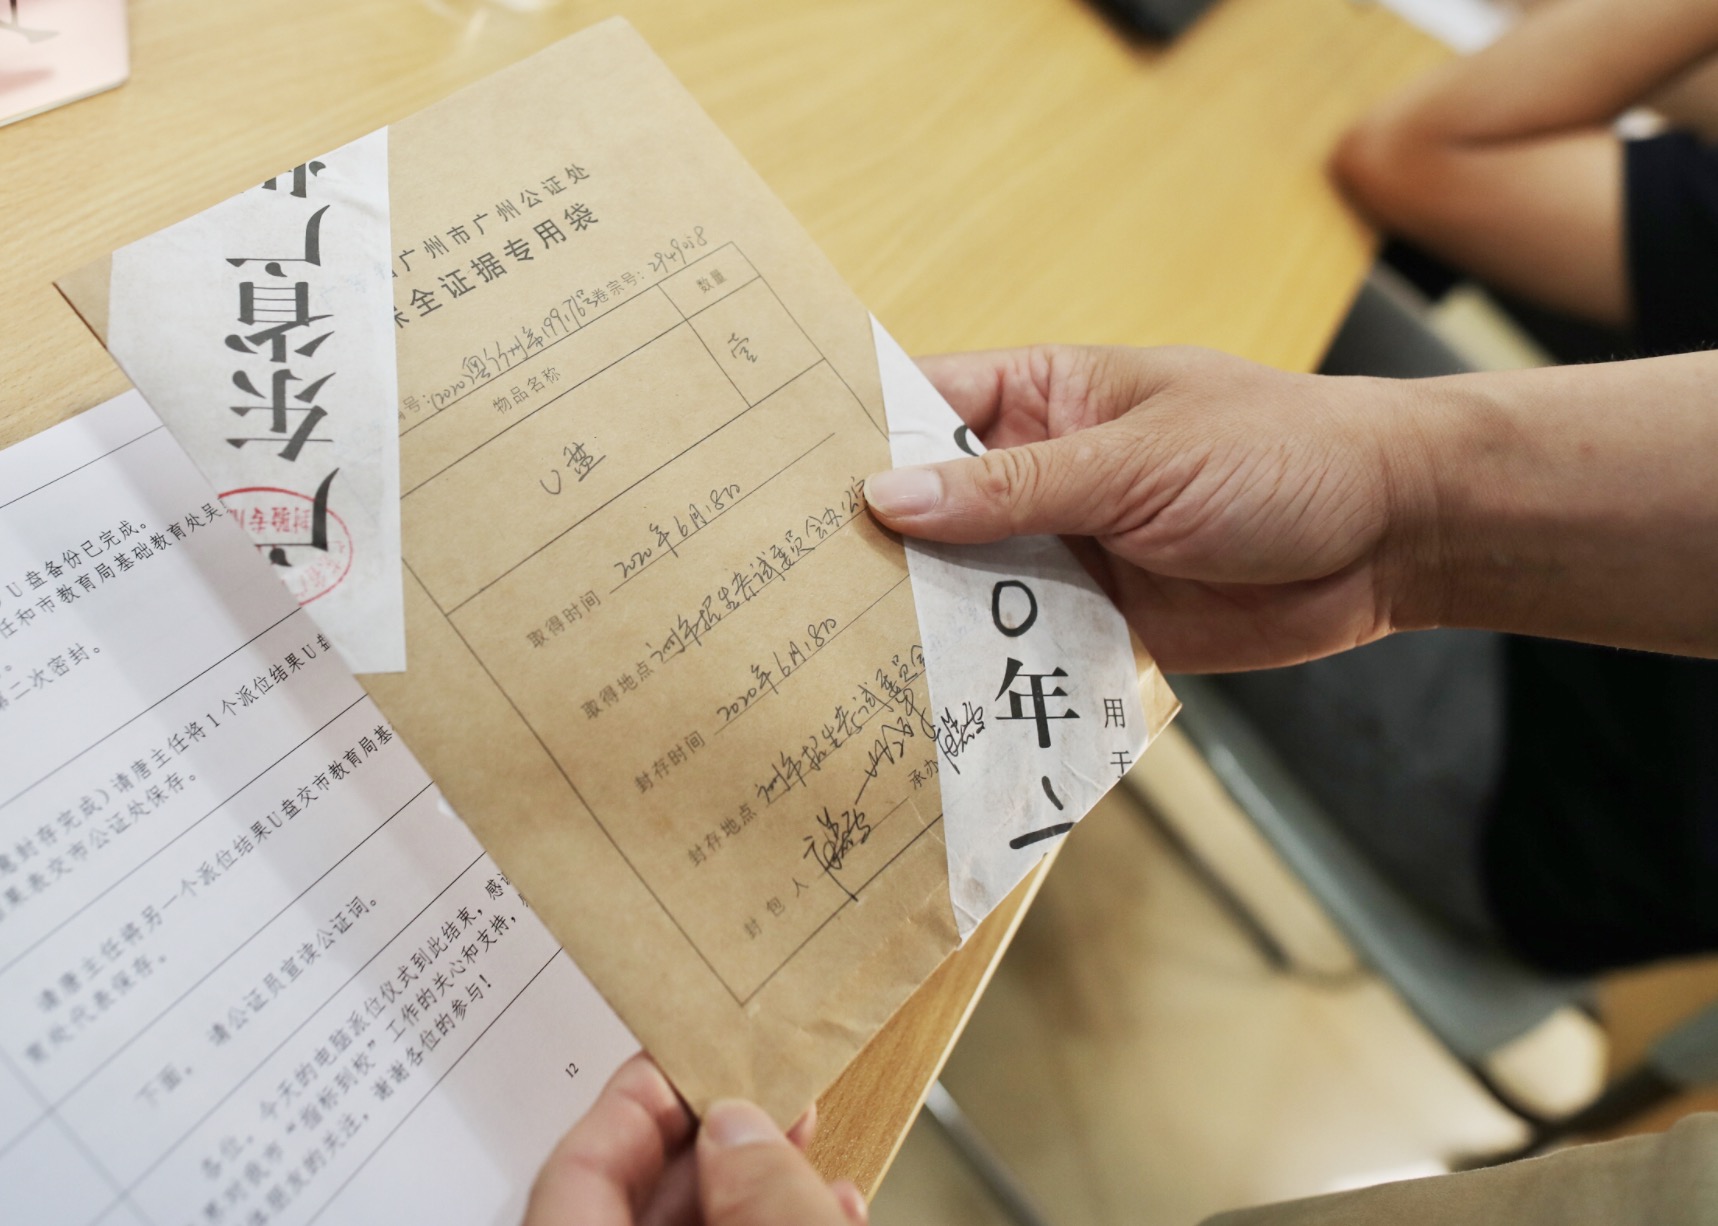 广东省广州
广州市广州公证处
保全证据专用袋
编号:(2020)粤广广州第199763卷宗号:294958
物品名称
数量
U盘
壹
取得时间 2020年6月18日
取得地点 广州市招生考试委员会办公室
封存时间 2020年6月18日
封存地点 广州市招生考试委员会
封包人
承办
〇年
用于
U盘备份已完成。
任和市教育局基础教育处吴
第二次密封。
封存完成)请唐主任将1个派位结果U盘
结果表交市公证处保存。
请唐主任将另一个派位结果U盘交市教育局基
育处代表保存。
下面,请公证员宣读公证词。
各位,今天的电脑派位仪式到此结束,感谢
界对我市“指标到校”工作的关心和支持,
体朋友的关注,谢谢各位的参与!
12